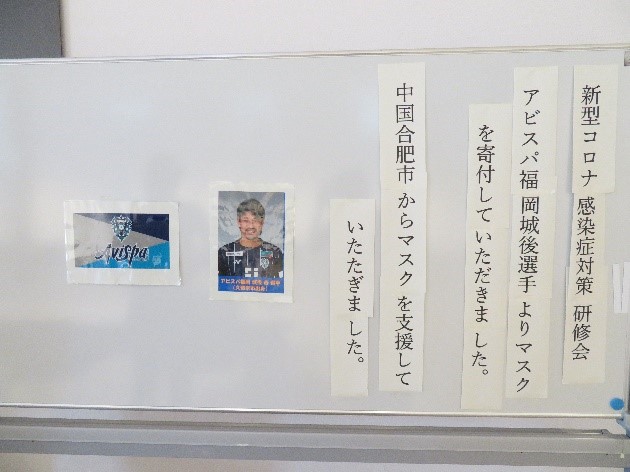 新型コロナ感染症対策 研修会
アビスパ福岡城後選手よりマスク
を寄付していただきました。
中国合肥市からマスクを支援して
いたたぎました。
Avispa